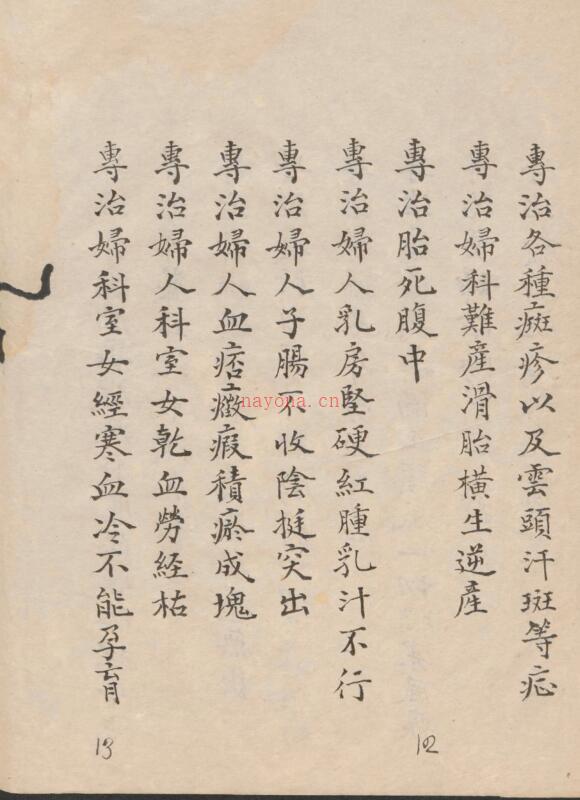 專治各種癍疹以及雲頭汗斑等症
專治婦科難產滑胎橫生逆產
專治胎死腹中
專治婦人乳房堅硬紅腫乳汁不行
專治婦人子腸不收陰挺突出
專治婦人血痞癥瘕積瘀成塊
專治婦人科室女乾血勞経枯
專治婦科室女經寒血冷不能孕育
12
13
nayona.cn